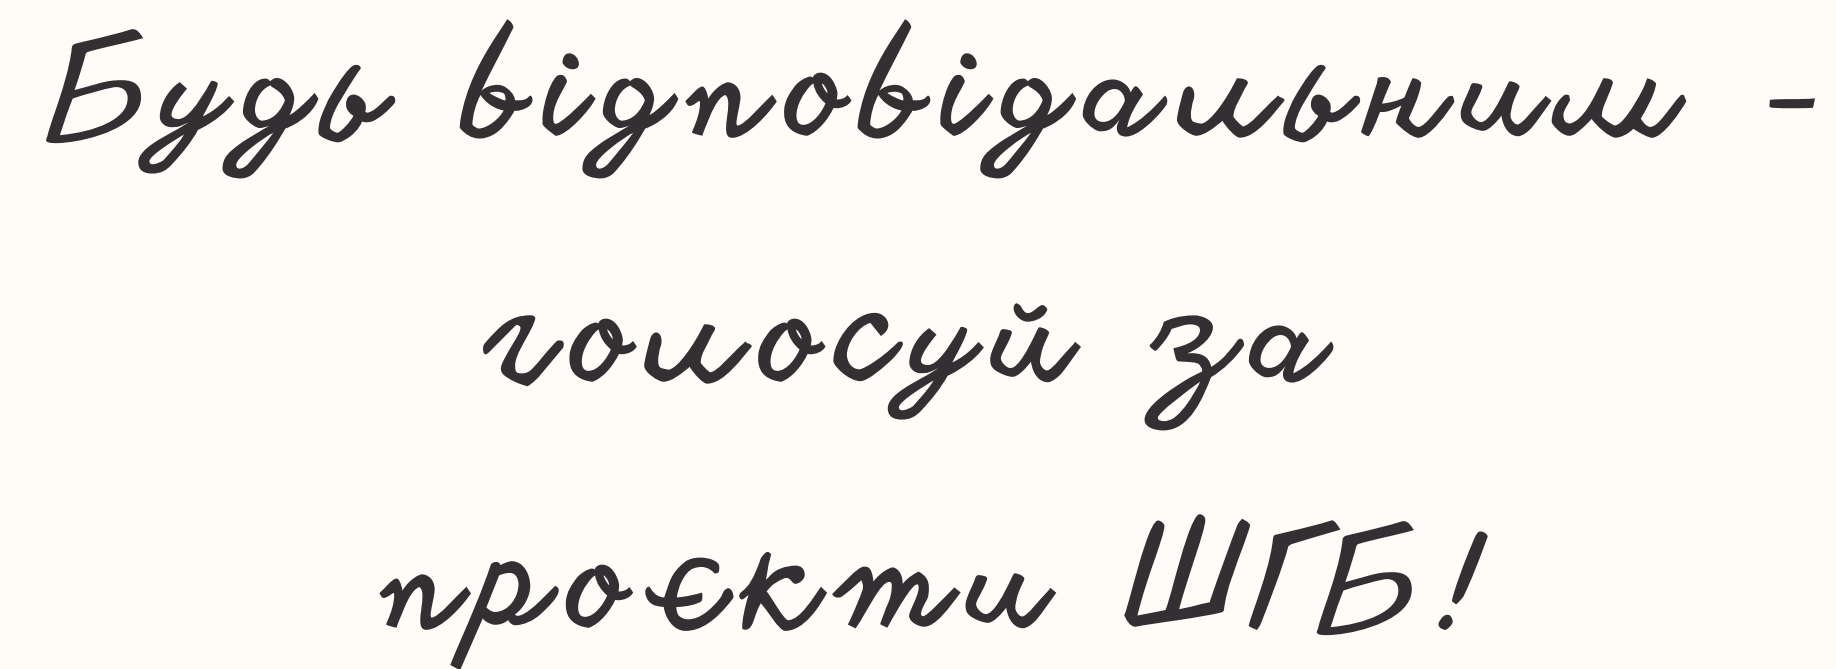 Будь відповідальним -
голосуй за
проєкти ШГБ!